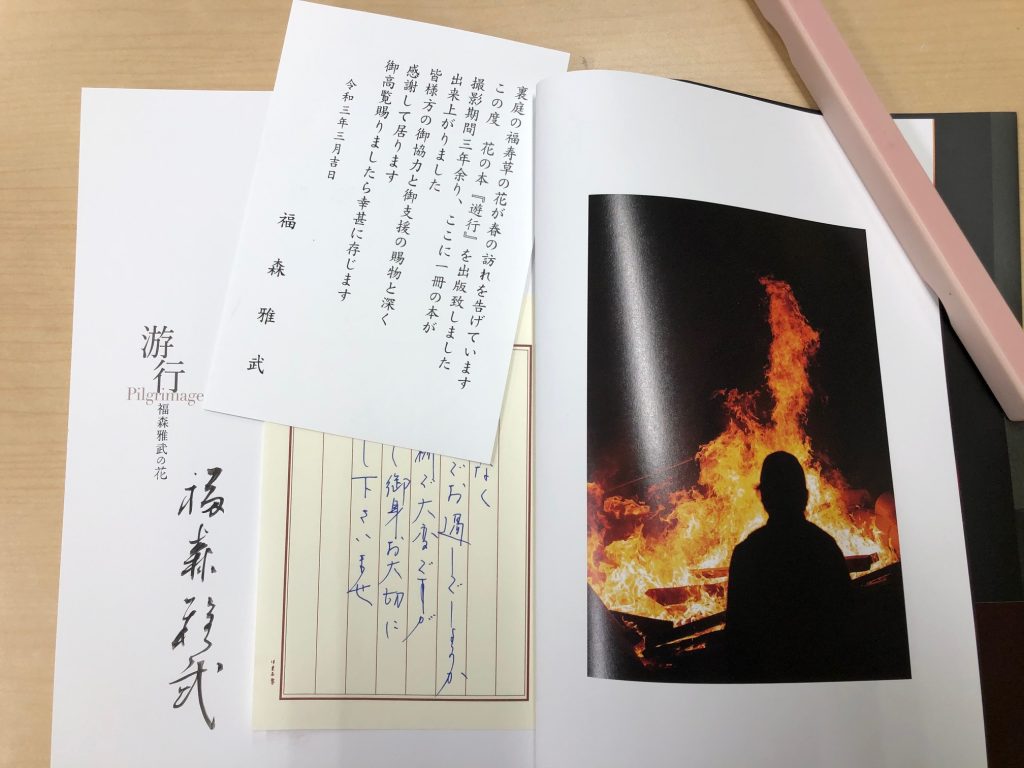 裏庭の福寿草の花が春の訪れを告げています
この度　花の本『遊行』を出版致しました
撮影期間三年余り、ここに一冊の本が
出来上がりました
皆様方の御協力と御支援の賜物と深く
感謝して居ります
御高覧賜りましたら幸甚に存じます
令和三年三月吉日
福森雅武
游行
Pilgrimage
福森雅武の花
福森雅武
なく
でお過しでしょうか
大変ですが
御身お大切に
し下さいませ